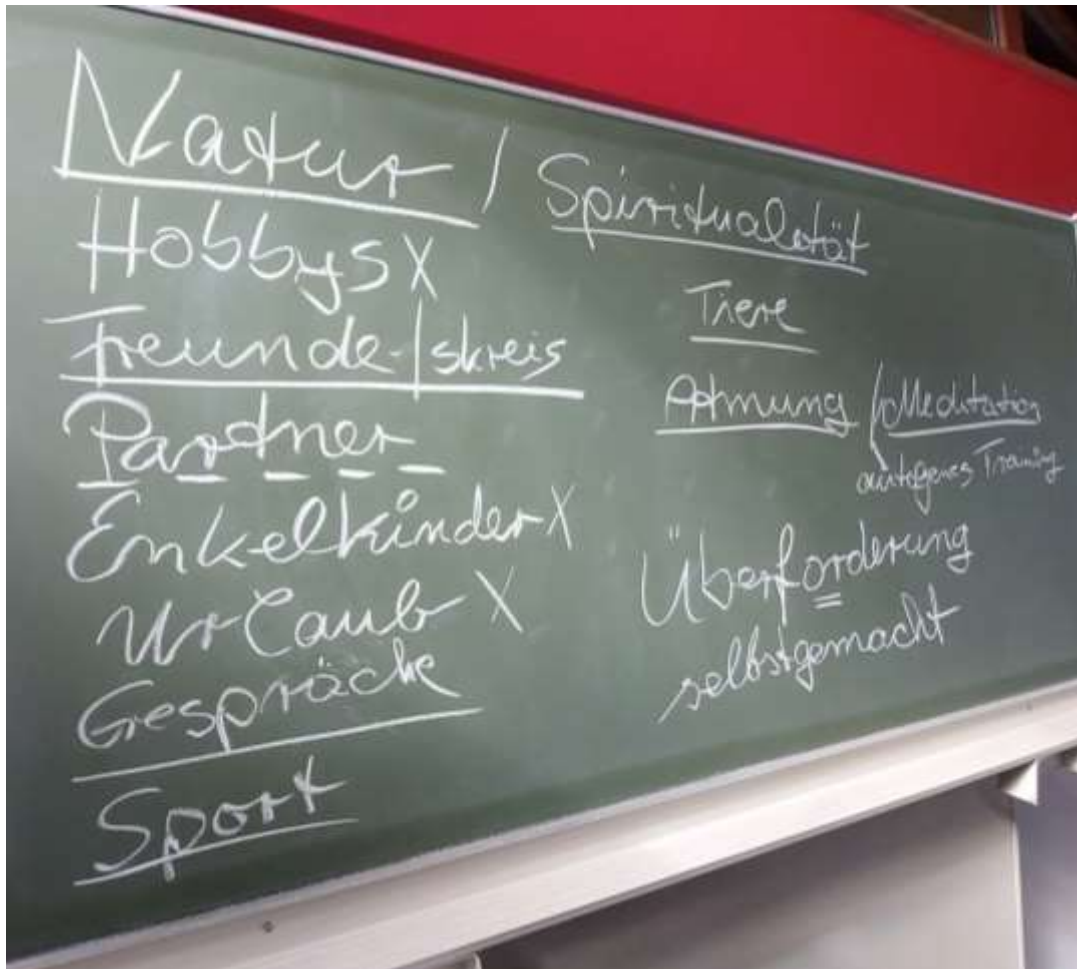 Natur / Spiritualität
Hobbys X
Freunde-/skreis
Partner
Enkelkinder X
Urlaub X
Gespräche
Sport
Tiere
Atmung / Meditation
autogenes Training
Überforderung
selbstgemacht